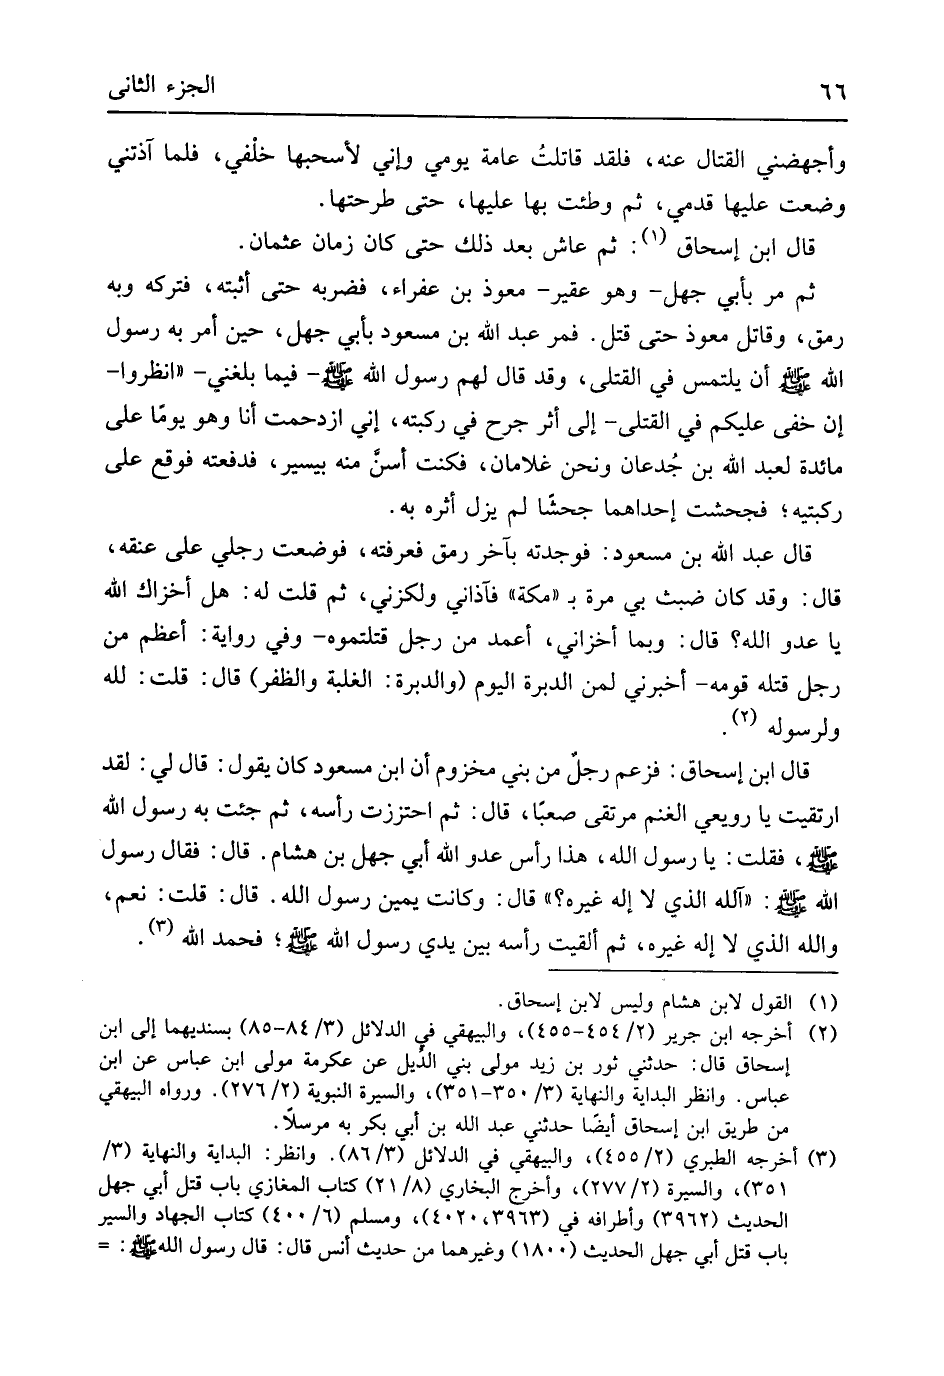 ٦٦ الجزء الثانى
وأجهضني القتال عنه، فلقد قاتلتُ عامة يومي وإني لأسحبها خلْفي، فلما آذتني
وضعت عليها قدمي، ثم وطئت بها عليها، حتى طرحتها.
قال ابن إسحاق (١): ثم عاش بعد ذلك حتى كان زمان عثمان.
ثم مر بأبي جهل- وهو عقير- معوذ بن عفراء، فضربه حتى أثبته، فتركه وبه
رمق، وقاتل معوذ حتى قتل. فمر عبد الله بن مسعود بأبي جهل، حين أمر به رسول
الله ﷺ أن يلتمس في القتلى، وقد قال لهم رسول الله ﷺ- فيما بلغني- «انظروا-
إن خفى عليكم في القتلى- إلى أثر جرح في ركبته، إني ازدحمت أنا وهو يومًا على
مائدة لعبد الله بن جُدعان ونحن غلامان، فكنت أسنَّ منه بيسير، فدفعته فوقع على
ركبتيه؛ فجحشت إحداهما جحشًا لم يزل أثره به.
قال عبد الله بن مسعود: فوجدته بآخر رمق فعرفته، فوضعت رجلي على عنقه،
قال: وقد كان ضبث بي مرة بـ «مكة» فآذاني ولكزني، ثم قلت له: هل أخزاك الله
يا عدو الله؟ قال: وبما أخزاني، أعمد من رجل قتلتموه- وفي رواية: أعظم من
رجل قتله قومه- أخبرني لمن الدبرة اليوم (والدبرة: الغلبة والظفر) قال: قلت: لله
ولرسوله (٢).
قال ابن إسحاق: فزعم رجلٌ من بني مخزوم أن ابن مسعود كان يقول: قال لي: لقد
ارتقيت يا رويعي الغنم مرتقى صعبًا، قال: ثم احتززت رأسه، ثم جئت به رسول الله
ﷺ، فقلت: يا رسول الله، هذا رأس عدو الله أبي جهل بن هشام. قال: فقال رسول
الله ﷺ: «آلله الذي لا إله غيره؟» قال: وكانت يمين رسول الله. قال: قلت: نعم،
والله الذي لا إله غيره، ثم ألقيت رأسه بين يدي رسول الله ﷺ؛ فحمد الله (٣).
(١) القول لابن هشام وليس لابن إسحاق.
(٢) أخرجه ابن جرير (٢/ ٤٥٤-٤٥٥)، والبيهقي في الدلائل (٣/ ٨٤-٨٥) بسنديهما إلى ابن
إسحاق قال: حدثني ثور بن زيد مولى بني الدُّيل عن عكرمة مولى ابن عباس عن ابن
عباس. وانظر البداية والنهاية (٣/ ٣٥٠-٣٥١)، والسيرة النبوية (٢/ ٢٧٦). ورواه البيهقي
من طريق ابن إسحاق أيضًا حدثني عبد الله بن أبي بكر به مرسلاً.
(٣) أخرجه الطبري (٢/ ٤٥٥)، والبيهقي في الدلائل (٣/ ٨٦). وانظر: البداية والنهاية (٣/
٣٥١)، والسيرة (٢/ ٢٧٧)، وأخرج البخاري (٨/ ٢١) كتاب المغازي باب قتل أبي جهل
الحديث (٣٩٦٢) وأطرافه في (٣٩٦٣، ٤٠٢٠)، ومسلم (٦/ ٤٠٠) كتاب الجهاد والسير
باب قتل أبي جهل الحديث (١٨٠٠) وغيرهما من حديث أنس قال: قال رسول الله ﷺ: =